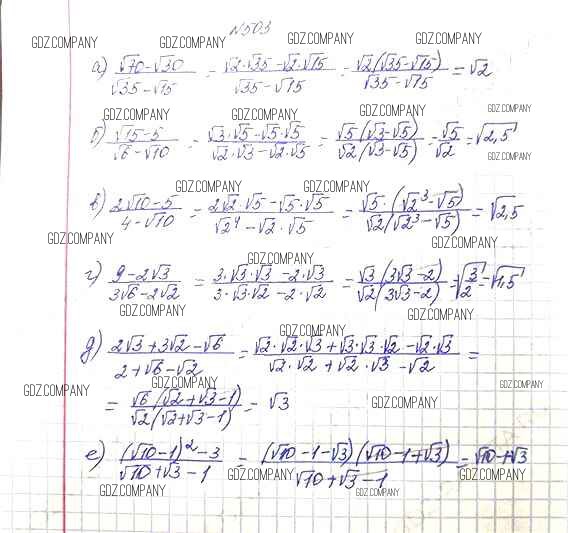 N503
GDZ.COMPANY GDZ.COMPANY GDZ.COMPANY GDZ.COMPANY
а) (√70-√30)/(√35-√15) = (√2·√35-√2·√15)/(√35-√15) = (√2(√35-√15))/(√35-√15) = √2
GDZ.COMPANY GDZ.COMPANY GDZ.COMPANY GDZ.COMPANY
б) (√15-5)/(√6-√10) = (√3·√5-√5·√5)/(√2·√3-√2·√5) = (√5(√3-√5))/(√2(√3-√5)) = √5/√2 = √2,5
GDZ.COMPANY GDZ.COMPANY
в) (2√10-5)/(4-√10) = (2√2·√5-√5·√5)/(√2⁴-√2·√5) = (√5·(√2³-√5))/(√2(√2³-√5)) = √2,5
GDZ.COMPANY GDZ.COMPANY
GDZ.COMPANY
г) (9-2√3)/(3√6-2√2) = (3·√3·√3-2·√3)/(3·√3·√2-2·√2) = (√3(3√3-2))/(√2(3√3-2)) = √(3/2) = √1,5
GDZ.COMPANY GDZ.COMPANY
GDZ.COMPANY
д) (2√3+3√2-√6)/(2+√6-√2) = (√2·√2·√3+√3·√3·√2-√2·√3)/(√2·√2+√2·√3-√2) =
GDZ.COMPANY GDZ.COMPANY GDZ.COMPANY
= (√6(√2+√3-1))/(√2(√2+√3-1)) = √3
GDZ.COMPANY
е) ((√10-1)²-3)/(√10+√3-1) = ((√10-1-√3)(√10-1+√3))/(√10+√3-1) = √10-1-√3
GDZ.COMPANY GDZ.COMPANY GDZ.COMPANY
GDZ.COMPANY GDZ.COMPANY